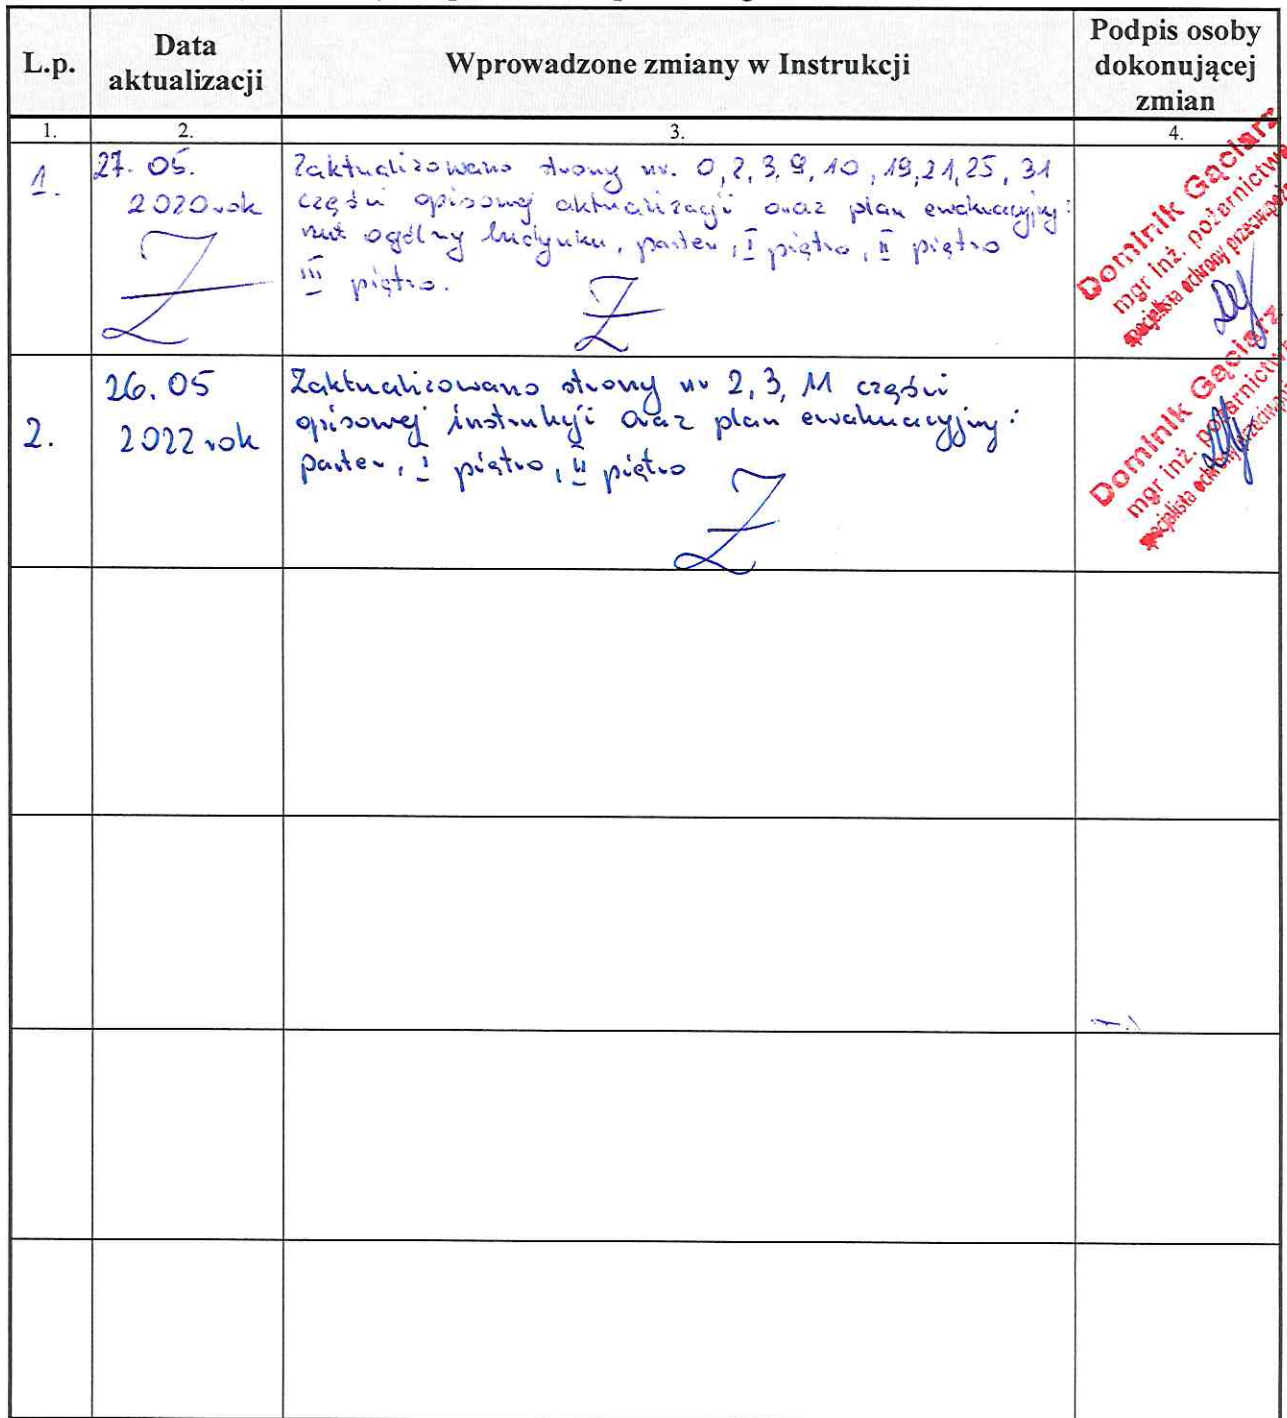 L.p.
Data
aktualizacji
Wprowadzone zmiany w Instrukcji
Podpis osoby
dokonującej
zmian
1.
2.
3.
4.
1.
27. 05.
2020 rok
Zaktualizowano strony nr. 0, 2, 3, 9, 10, 19, 21, 25, 31
części opisowej aktualizacji oraz plan ewakuacyjny:
rzut ogólny budynku, parter, I piętro, II piętro
III piętro.
Dominik Gąciarz
mgr inż. pożarnictwa
specjalista ochrony
2.
26. 05
2022 rok
Zaktualizowano strony nr 2, 3, 11 części
opisowej instrukcji oraz plan ewakuacyjny:
parter, I piętro, II piętro
Dominik Gąciarz
mgr inż. pożarnictwa
specjalista ochrony